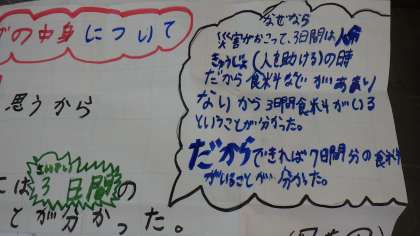 グの中身について
思うから
には3日間の
とが分かった。
なぜなら
災害がおこって、3日間は人命
きゅうじょ(人を助ける)の時
だから食料などがあまり
ないから3日間食料がいる
ということが分かった。
だからできれば7日間分の食料
がいることが分かった。